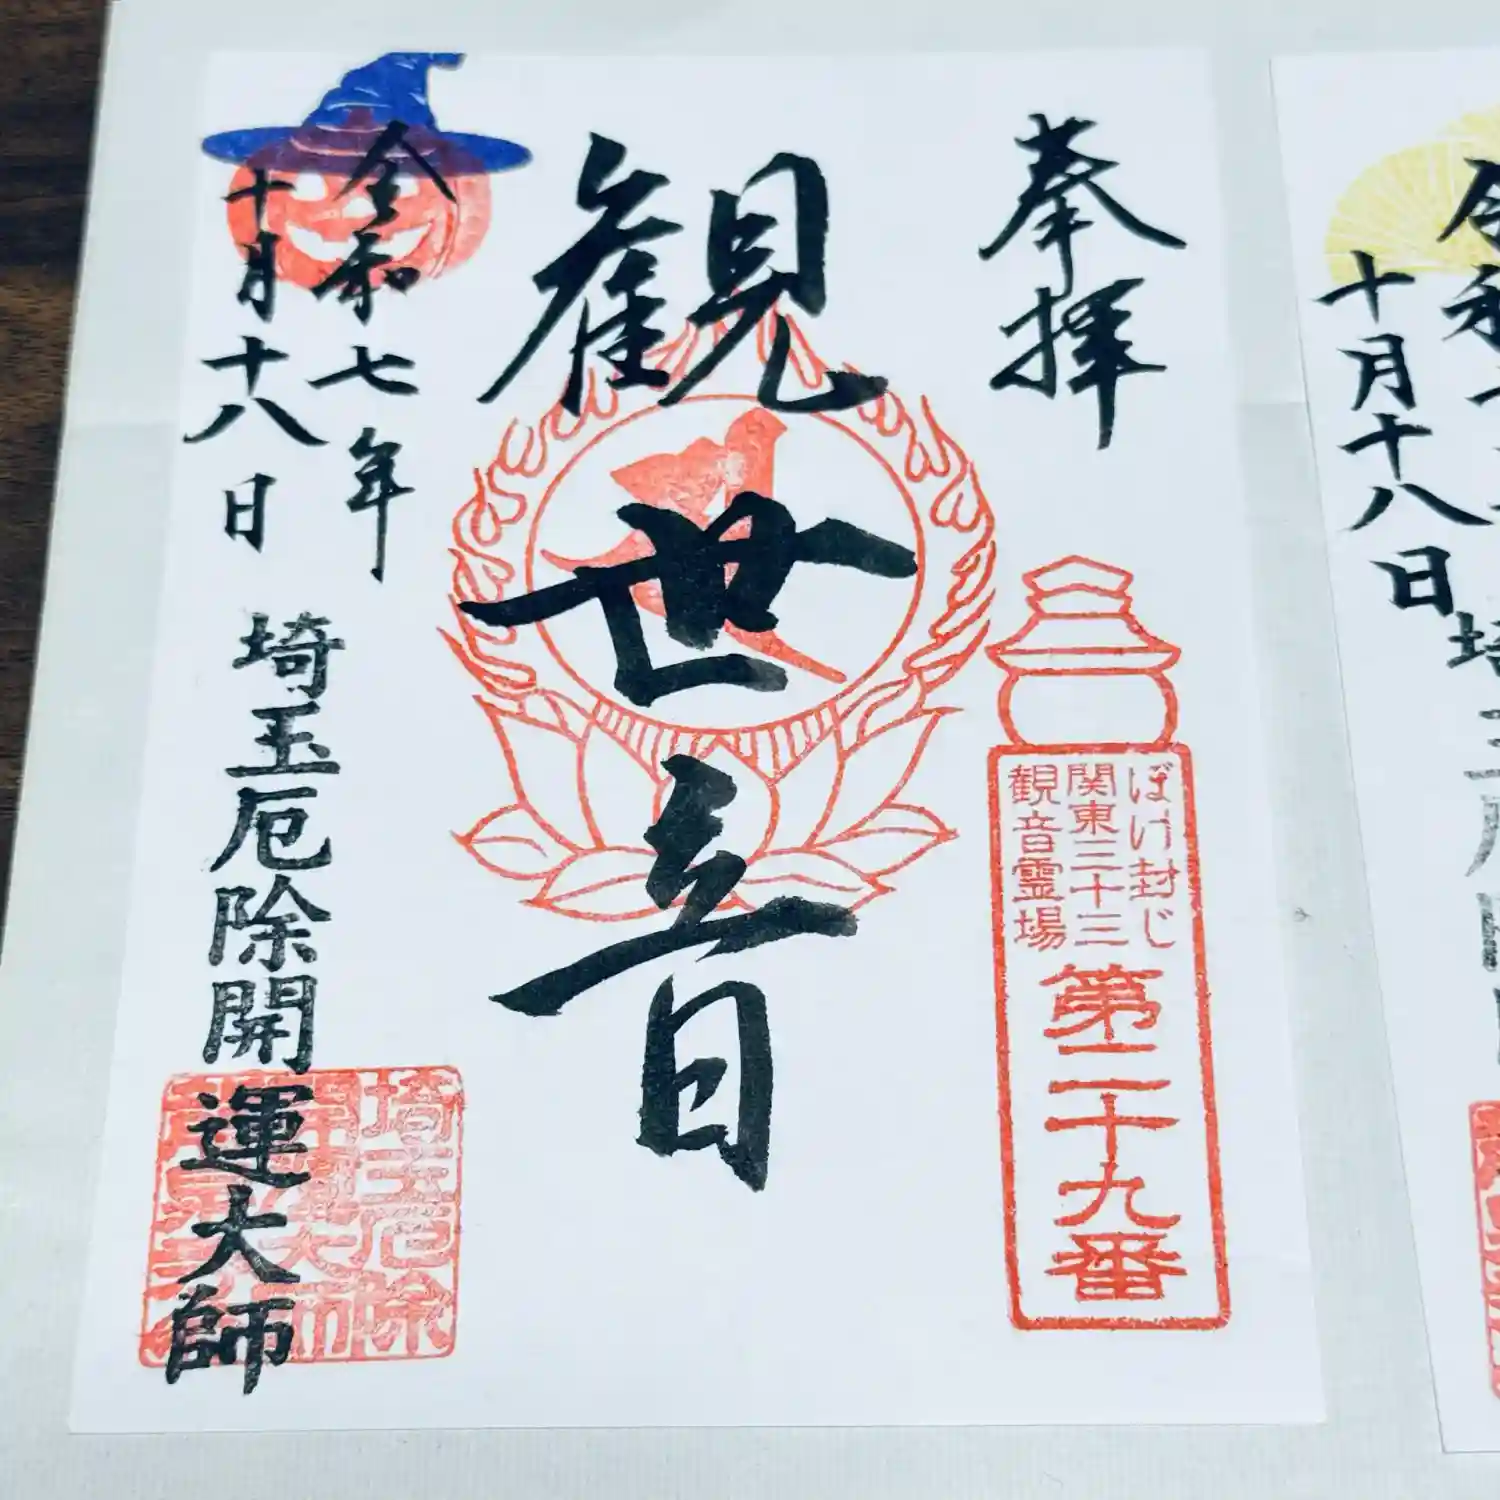 奉拝
ぼけ封じ
関東三十三
観音霊場
第二十九番
観世音
令和七年
十月十八日
埼玉厄除開運大師
埼玉厄除
開運大師
十月十八日